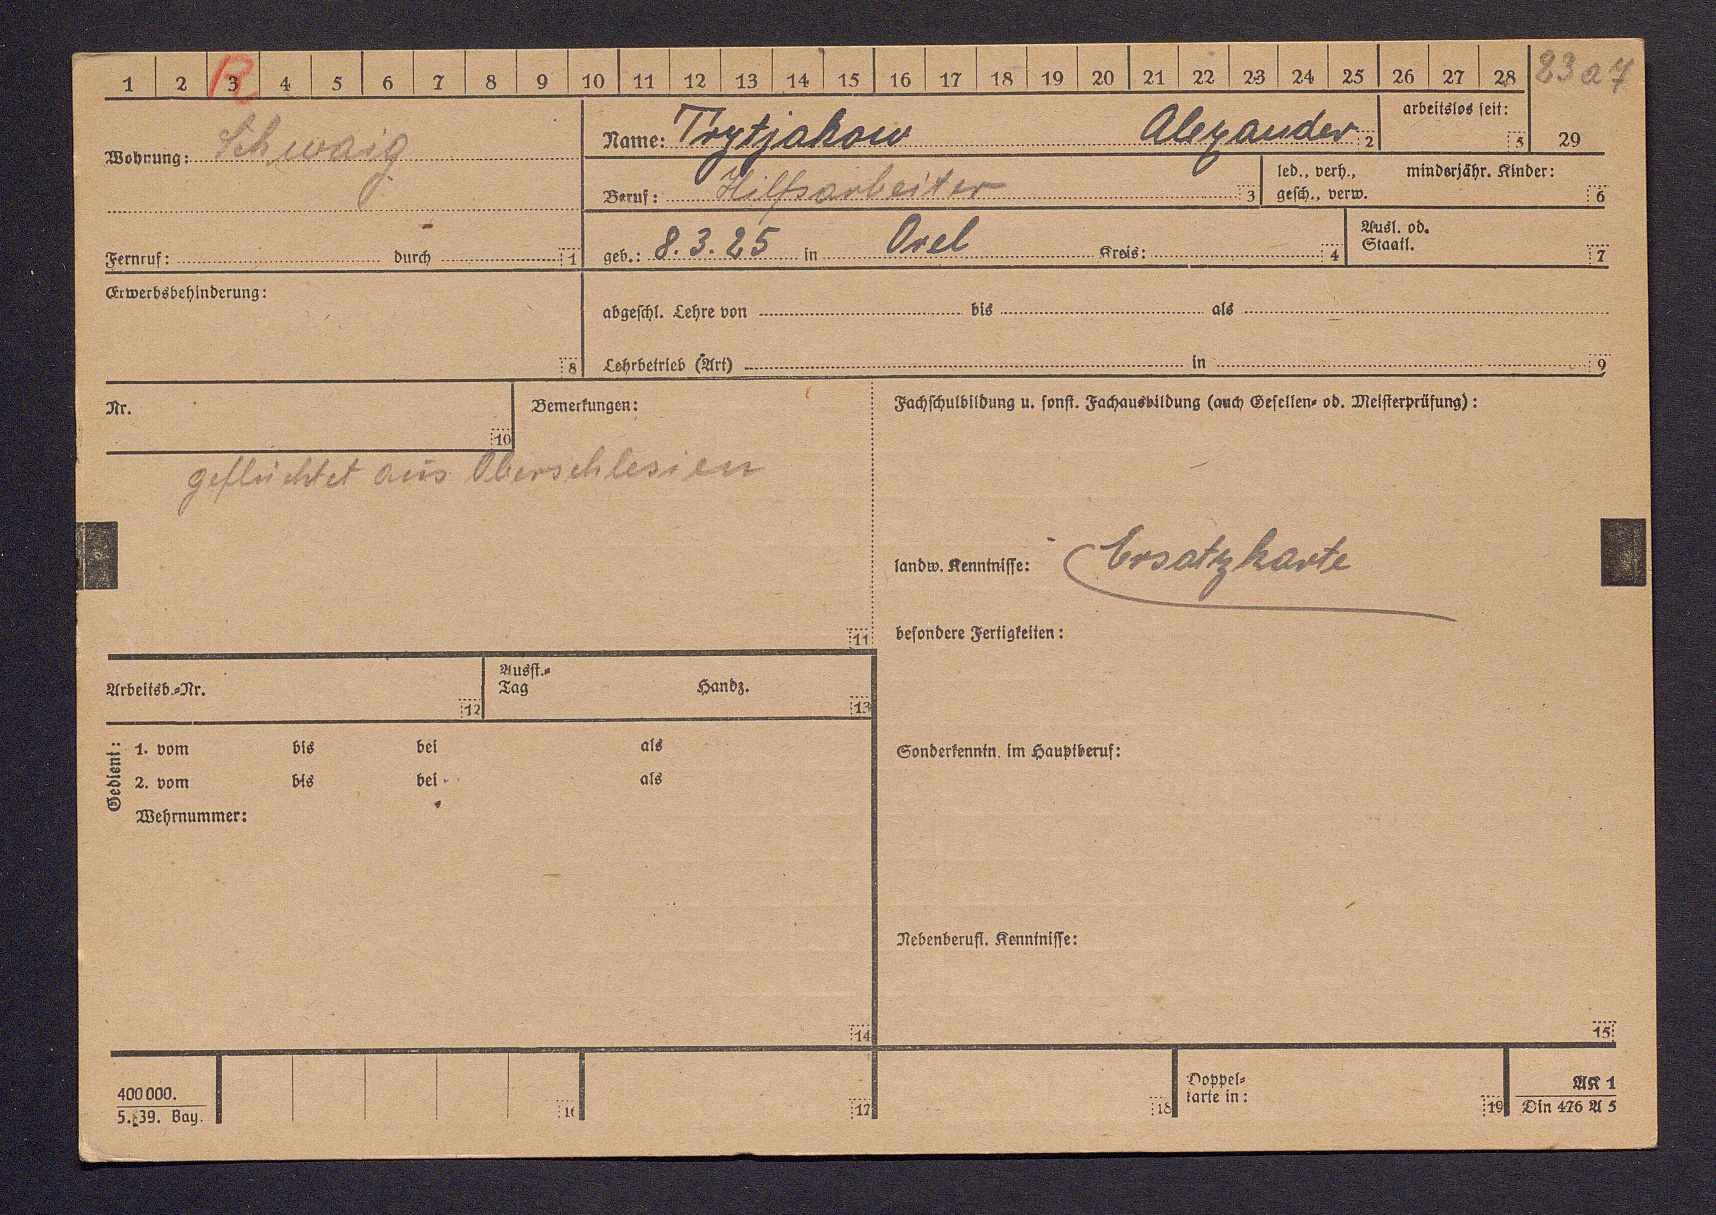 1 2 3 4 5 6 7 8 9 10 11 12 13 14 15 16 17 18 19 20 21 22 23 24 25 26 27 28 23 a 7
R
Wohnung: Schwaig
Name: Trytjakow Alexander 2
arbeitslos seit: 5
29
Beruf: Hilfsarbeiter 3
led., verh., minderjähr. Kinder:
gesch., verw. 6
Fernruf: durch 1
geb.: 8.3.25 in Orel Kreis: 4
Ausl. od.
Staatl. 7
Erwerbsbehinderung:
8
abgeschl. Lehre von bis als
Lehrbetrieb (Art) in 9
Nr.
10
Bemerkungen:
geflüchtet aus Oberschlesien
11
Fachschulbildung u. sonst. Fachausbildung (auch Gesellen- od. Meisterprüfung):
landw. Kenntnisse: Ersatzkarte
besondere Fertigkeiten:
Sonderkenntn. im Hauptberuf:
Nebenberufl. Kenntnisse:
15
Arbeitsb.-Nr. 12
Ausst.-
Tag Handz. 13
Gedient:
1. vom bis bei als
2. vom bis bei als
Wehrnummer:
14
400 000.
5. 39. Bay.
16
17
18
Doppel-
karte in: 19
AK 1
Din 476 A 5